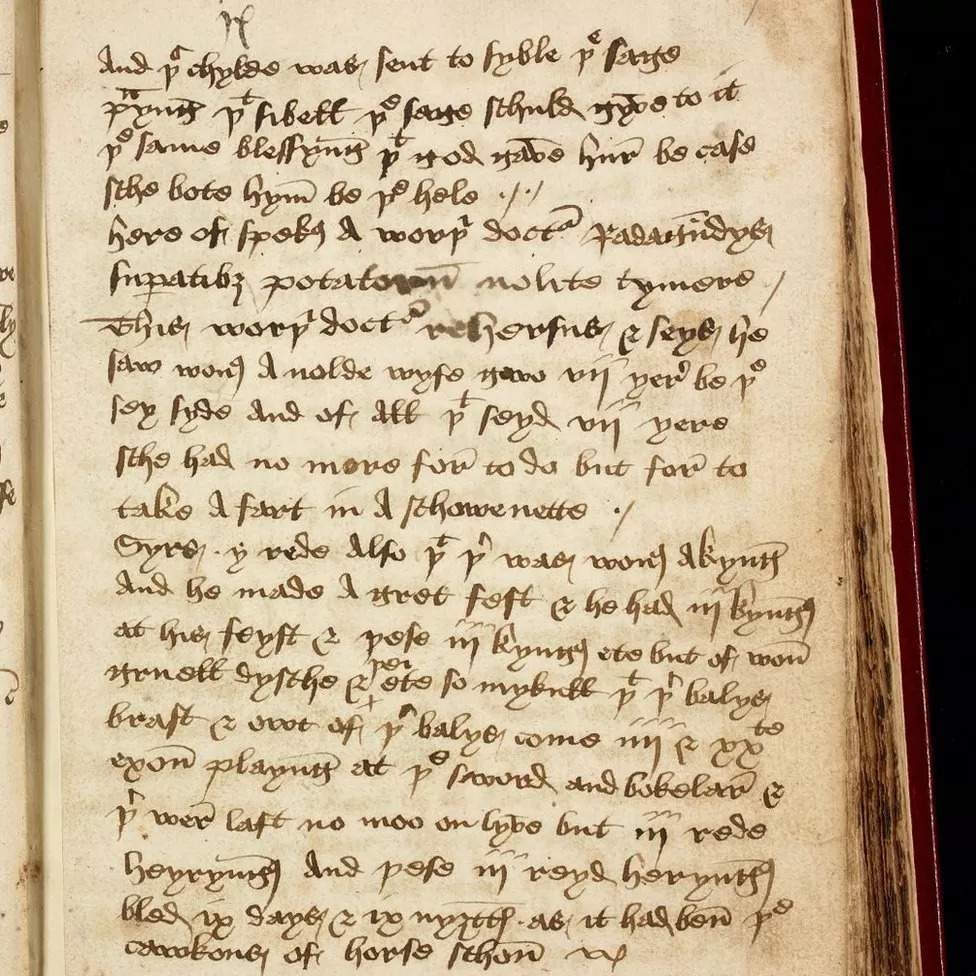 And þᵗ chylde was sent to syble þᵉ sage
þᵗ sibell þᵉ sage schuld gyve to it
þᵉ same blessyng þᵗ god gave hur be case
sche bote hym be þᵉ hele
here of speks A worþi doctʳ
potatorum nolite tymere
This worþi doctʳ rehersus & seys he
saw wons A nolde wyfe gwo vij yer be þᵉ
sey syde And of All þᵗ seyd vij yere
sche had no more for to do but for to
take A fart in A schowe nette
Syrs y rede Also þᵗ þʳ was wons A kyng
And he made A gret fest & he had iij kyngs
at his feyst & þese iij kyngs ete but of won
gruell dysche & þei ete so mykull þᵗ þʳ balys
brast & owt of þʳ balys come iiij & xxᵗᵉ
exon playng at þᵉ sword and bokelar &
þʳ wer laft no moo on lyve but iij rede
heyryngs And þese iij reyd heryngs
bled ix days & ix nyȝts as it had ben þᵉ
cawkons of horse schon